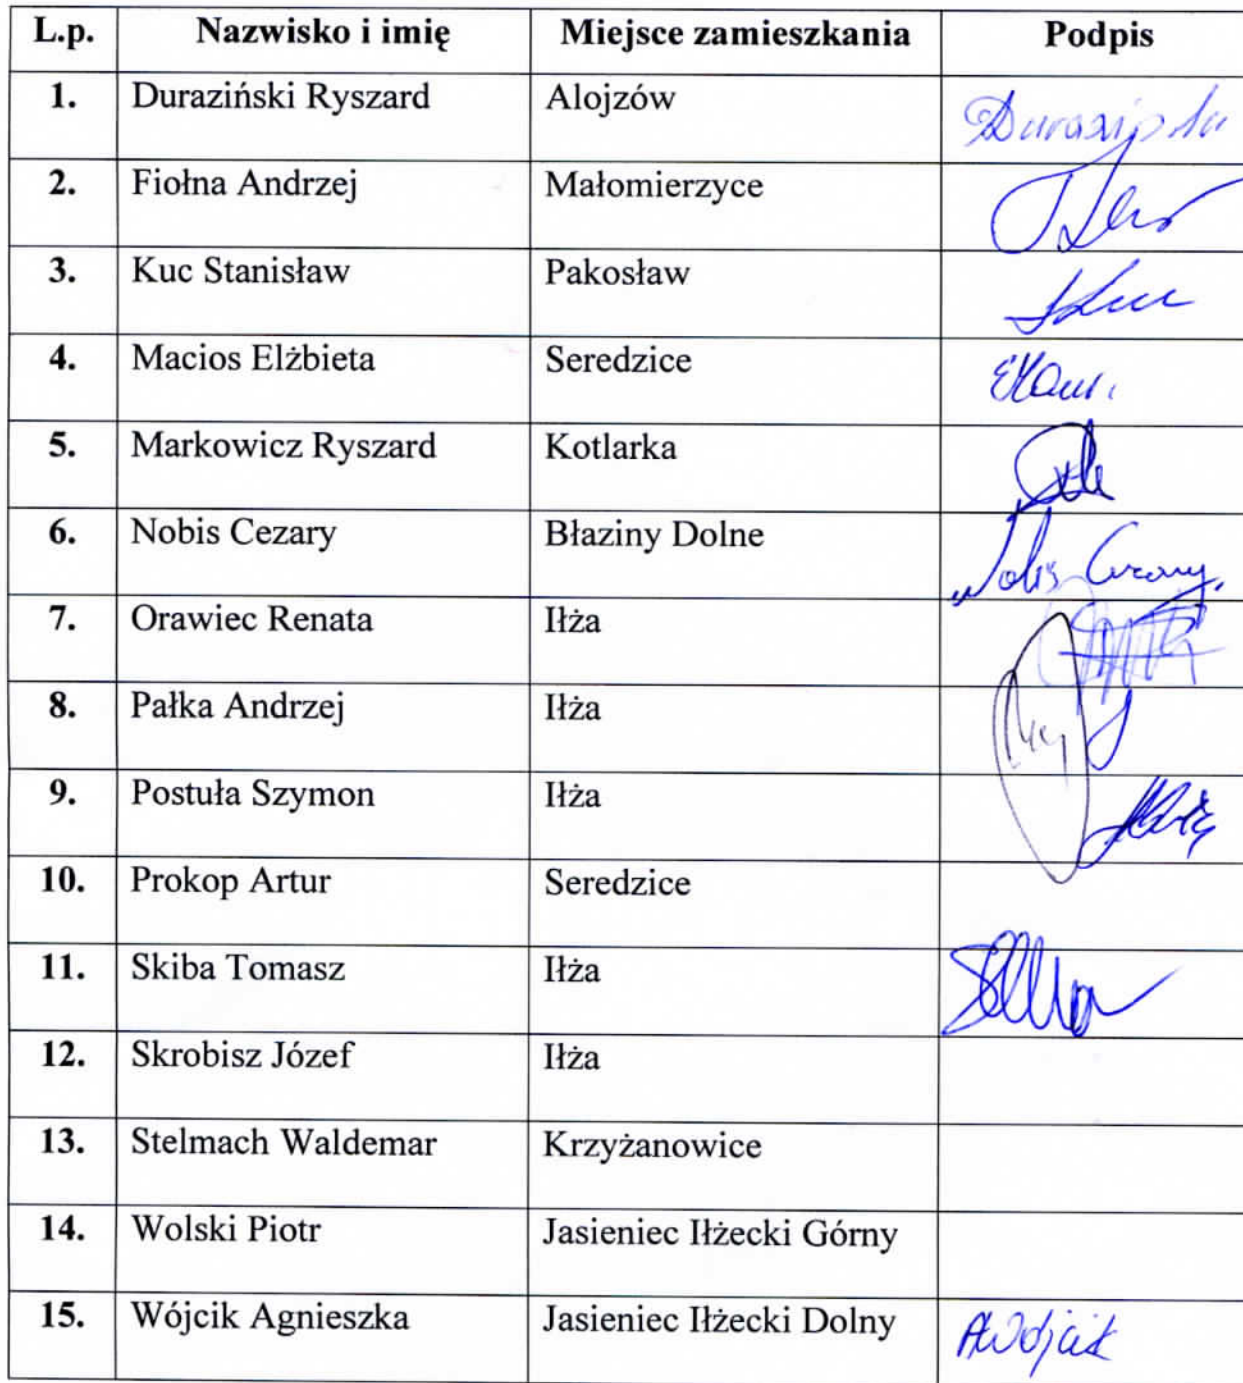 L.p. Nazwisko i imię Miejsce zamieszkania Podpis
1. Duraziński Ryszard Alojzów
2. Fiołna Andrzej Małomierzyce
3. Kuc Stanisław Pakosław
4. Macios Elżbieta Seredzice
5. Markowicz Ryszard Kotlarka
6. Nobis Cezary Błaziny Dolne Nobis Cezary
7. Orawiec Renata Iłża
8. Pałka Andrzej Iłża
9. Postuła Szymon Iłża
10. Prokop Artur Seredzice
11. Skiba Tomasz Iłża
12. Skrobisz Józef Iłża
13. Stelmach Waldemar Krzyżanowice
14. Wolski Piotr Jasieniec Iłżecki Górny
15. Wójcik Agnieszka Jasieniec Iłżecki Dolny AWójcik